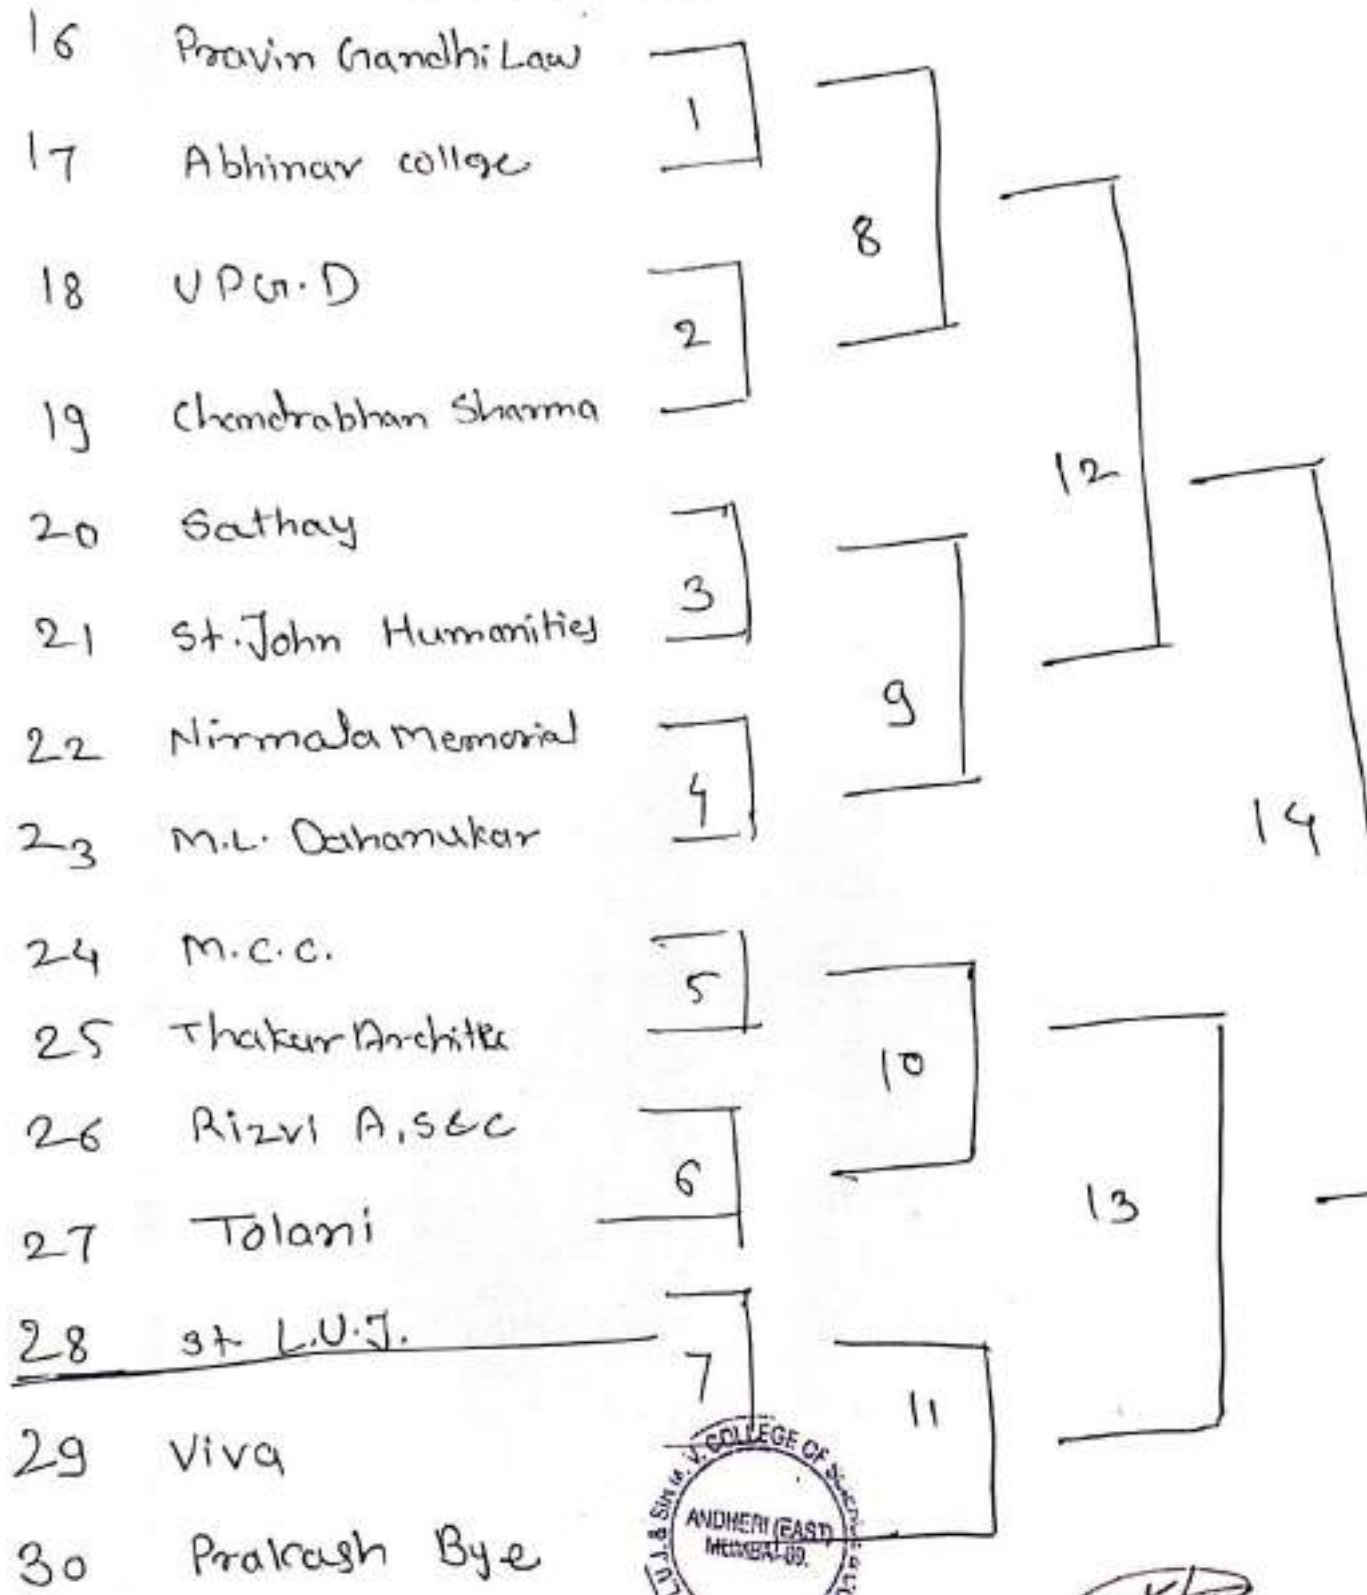 16 Pravin Gandhi Law
17 Abhinav collge
18 U P G. D
19 Chandrabhan Sharma
20 Sathay
21 St. John Humanities
22 Nirmala memorial
23 M.L. Dahanukar
24 M.C.C.
25 Thakur Architec
26 Rizvi A, S & C
27 Tolani
28 st L.U.J.
29 Viva
30 Prakash Bye
1
2
3
4
5
6
7
8
9
10
11
12
13
14
L.U.J. & Sir M. V. COLLEGE OF
ANDHERI (EAST)
MUMBAI-69.